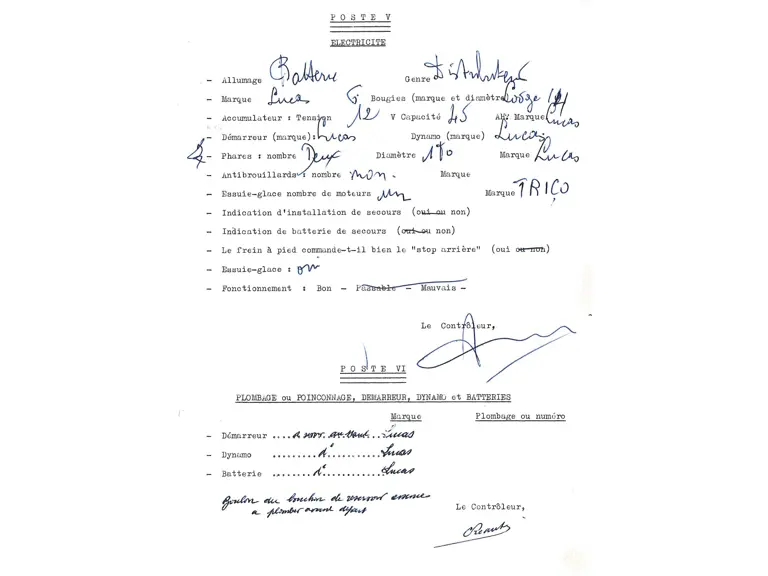 POSTE V
ELECTRICITE
- Allumage Batterie Genre Distributeur
- Marque Lucas 6 Bougies (marque et diamètre Lodge 14
- Accumulateur : Tension 12 V Capacité 45 AH Marque Lucas
- Démarreur (marque): Lucas Dynamo (marque) Lucas
- Phares : nombre Deux Diamètre 170 Marque Lucas
- Antibrouillards : nombre non. Marque
- Essuie-glace nombre de moteurs un Marque TRICO
- Indication d'installation de secours (oui ou non)
- Indication de batterie de secours (oui ou non)
- Le frein à pied commande-t-il bien le "stop arrière" (oui ou non)
- Essuie-glace : oui
- Fonctionnement : Bon - Passable - Mauvais -
Le Contrôleur,
POSTE VI
PLOMBAGE ou POINCONNAGE, DEMARREUR, DYNAMO et BATTERIES
Marque Plombage ou numéro
- Démarreur .... Lucas
- Dynamo ......... d° ....... Lucas
- Batterie ........ d° ....... Lucas
Boulon du bouchon de reservoir essence
a plomber avant départ
Le Contrôleur,